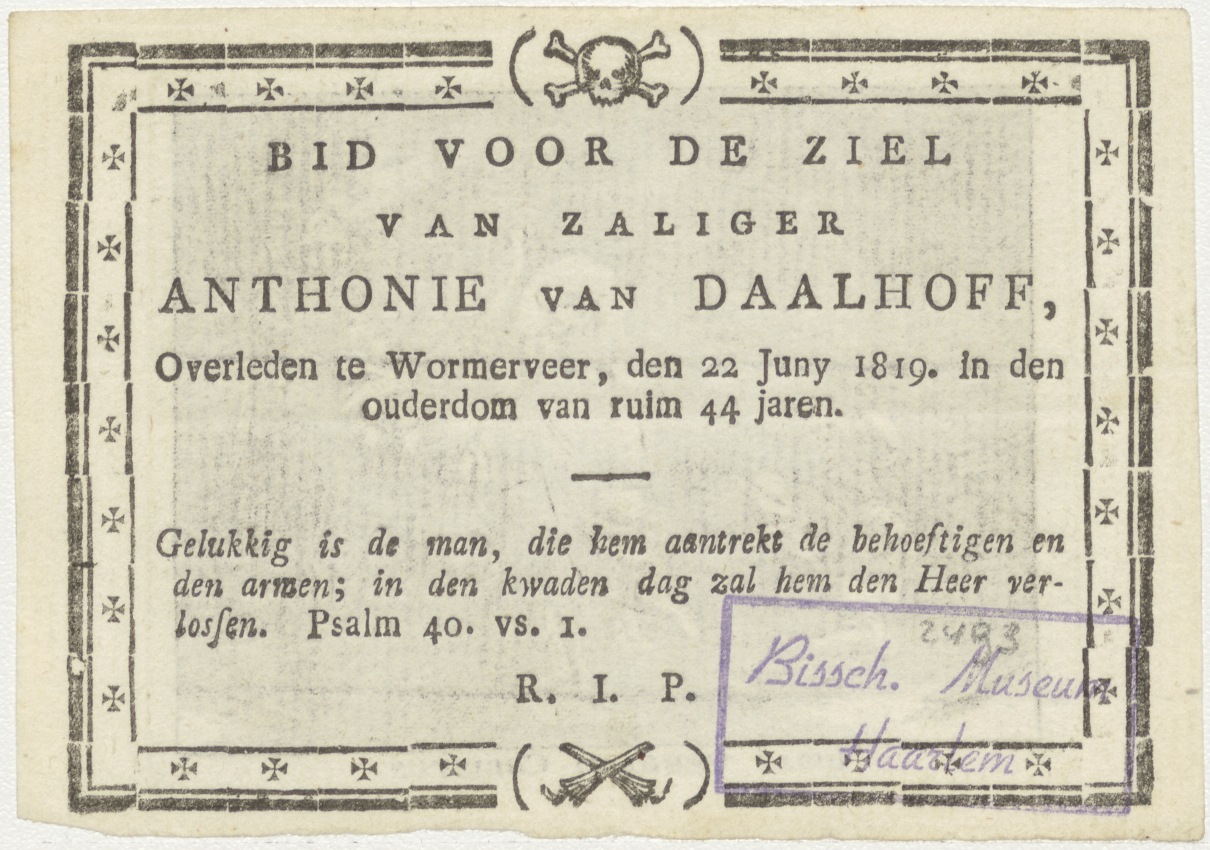 BID VOOR DE ZIEL
VAN ZALIGER
ANTHONIE VAN DAALHOFF,
Overleden te Wormerveer, den 22 Juny 1819. in den
ouderdom van ruim 44 jaren.
Gelukkig is de man, die hem aantrekt de behoeftigen en
den armen; in den kwaden dag zal hem den Heer ver-
losſen. Psalm 40. vs. 1.
R. I. P.
2493
Bissch. Museum
Haarlem